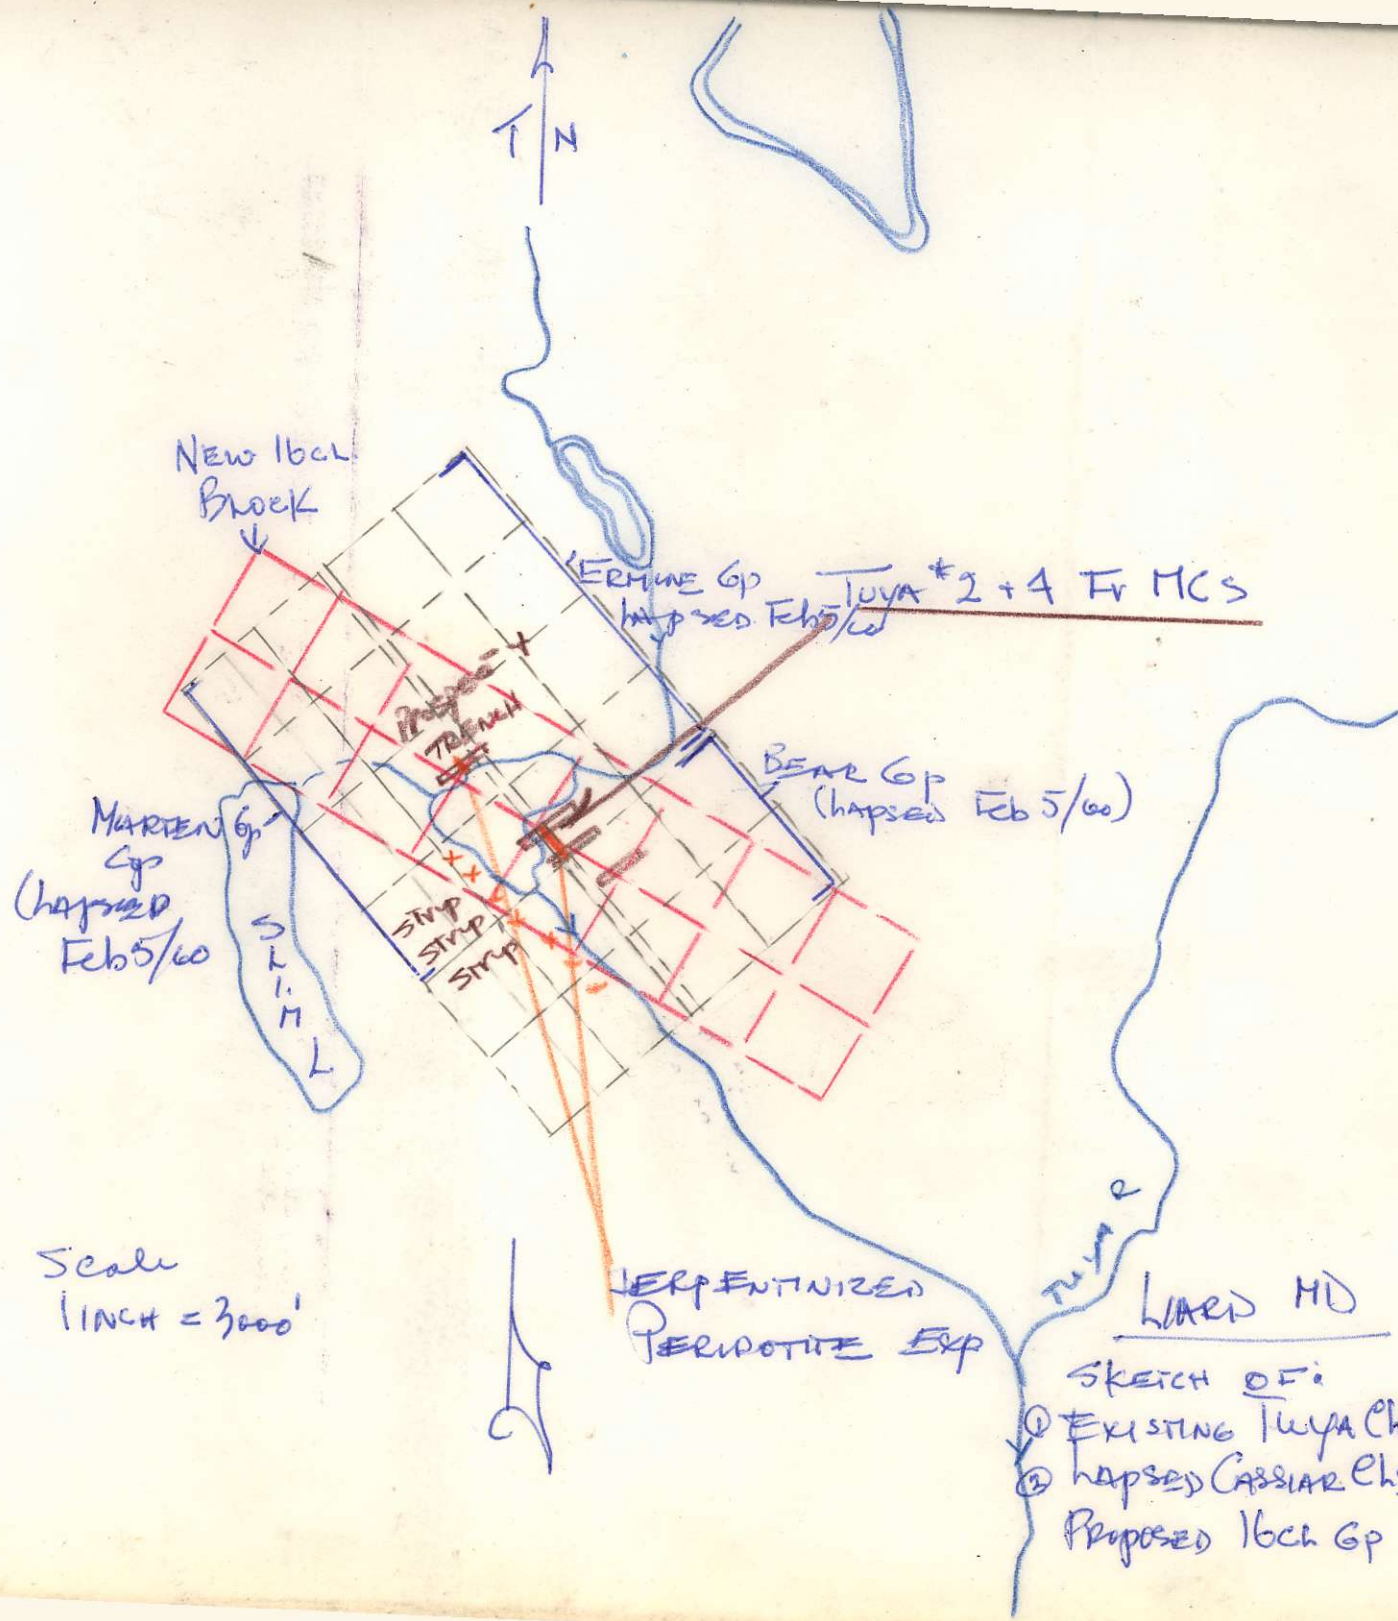 T N
NEW 16CL
BLOCK
ERMINE Gp
LAPSED Feb 5/60
TUYA #2 + 4 Fr MCS
PROSPECT +
TRENCH
BEAR Gp
(LAPSED Feb 5/60)
MARTEN Gp
Gp
(LAPSED
Feb 5/60
STRIP
STRIP
STRIP
SLIM L
Scale
1 INCH = 3000'
SERPENTINIZED
PERIDOTITE EXP
TUYA R
LIARD MD
SKETCH OF:
① EXISTING TUYA CL
② LAPSED CASSIAR CLS
PROPOSED 16CL Gp